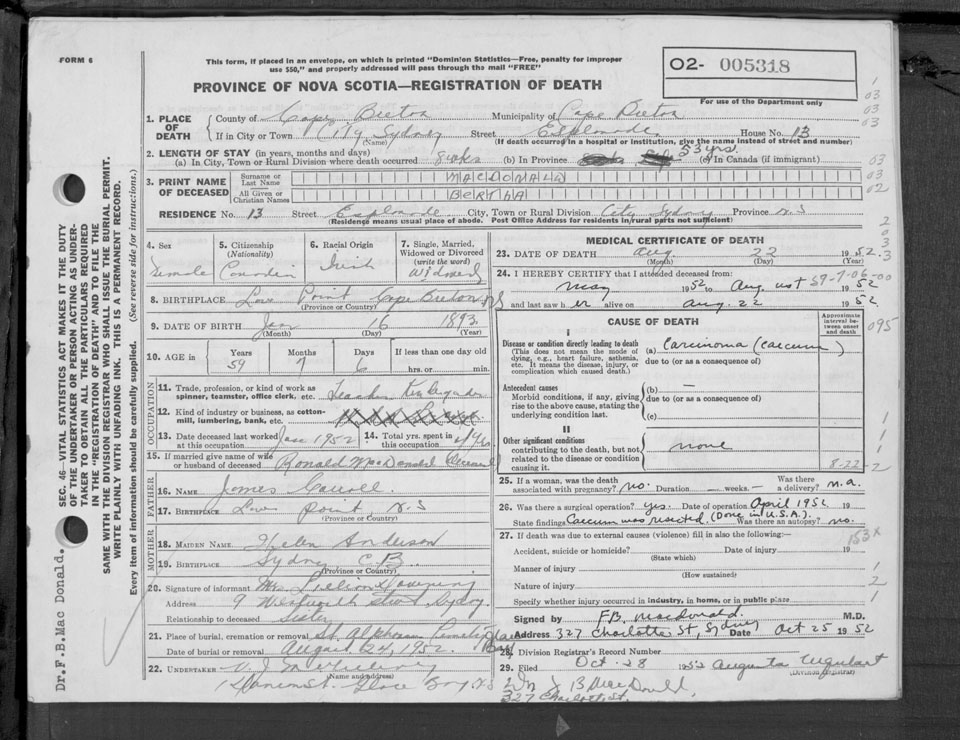 FORM 6
This form, if placed in an envelope, on which is printed "Dominion Statistics—Free, penalty for improper
use $50," and properly addressed will pass through the mail "FREE"
O2- 005318
PROVINCE OF NOVA SCOTIA—REGISTRATION OF DEATH
For use of the Department only
1. PLACE OF DEATH
County of Cape Breton Municipality of Cape Breton
If in City or Town City Sydney Street Esplanade House No. 13
(Name) (If death occurred in a hospital or institution, give the name instead of street and number)
2. LENGTH OF STAY (in years, months and days)
(a) In City, Town or Rural Division where death occurred 8 wks (b) In Province 53 yrs. (c) In Canada (if immigrant)
3. PRINT NAME OF DECEASED
Surname or Last Name MACDONALD
All Given or Christian Names BERTHA
RESIDENCE No. 13 Street Esplanade City, Town or Rural Division City Sydney Province N.S
(Residence means usual place of abode. Post Office Address for residents in rural parts not sufficient)
4. Sex Female
5. Citizenship (Nationality) Canadian
6. Racial Origin Irish
7. Single, Married, Widowed or Divorced (write the word) Widowed
8. BIRTHPLACE Low Point Cape Breton NS
(Province or Country)
9. DATE OF BIRTH Jan 16 1893
(Month) (Day) (Year)
10. AGE in Years Months Days If less than one day old
59 7 6 hrs. or min.
OCCUPATION
11. Trade, profession, or kind of work as spinner, teamster, office clerk, etc. Teacher
12. Kind of industry or business, as cotton-mill, lumbering, bank, etc.
13. Date deceased last worked at this occupation June 1952
14. Total yrs. spent in this occupation
15. If married give name of wife or husband of deceased Ronald MacDonald Deceased
FATHER
16. NAME James Carroll
17. BIRTHPLACE Low Point, N.S
(Province or Country)
MOTHER
18. MAIDEN NAME Helen Anderson
19. BIRTHPLACE Sydney C.B
(Province or Country)
20. Signature of informant Mrs
Address 9 Street Sydney
Relationship to deceased Sister
21. Place of burial, cremation or removal St. Alphonsus Cemetery
Date of burial or removal August 24, 1952.
22. UNDERTAKER V. J. McGillivray
(Name and address)
Glace Bay NS
MEDICAL CERTIFICATE OF DEATH
23. DATE OF DEATH Aug 22 1952
(Month) (Day) (Year)
24. I HEREBY CERTIFY that I attended deceased from:
May 1952 to August 1952
59-7-06-00
and last saw her alive on Aug. 22 1952
CAUSE OF DEATH
Approximate interval between onset and death
I
Disease or condition directly leading to death (a) Carcinoma (Caecum)
(This does not mean the mode of dying, e.g., heart failure, asthenia, etc. It means the disease, injury, or complication which caused death.)
due to (or as a consequence of)
Antecedent causes (b) —
Morbid conditions, if any, giving rise to the above cause, stating the underlying condition last.
due to (or as a consequence of)
(c)
II
Other significant conditions contributing to the death, but not related to the disease or condition causing it. none
8-22-2
25. If a woman, was the death associated with pregnancy? no. Duration — weeks. — Was there a delivery? n.a.
26. Was there a surgical operation? yes. Date of operation April 1952 19
State findings Caecum was resected. (Done in U.S.A.). Was there an autopsy? no.
27. If death was due to external causes (violence) fill in also the following:—
153X
Accident, suicide or homicide? Date of injury 19
(State which)
Manner of injury
(How sustained)
Nature of injury
Specify whether injury occurred in industry, in home, or in public place
Signed by F.B. MacDonald. M.D.
Address 327 Charlotte St, Sydney Date Oct 25 1952
28. Division Registrar's Record Number
29. Filed Oct - 28 1952 Augusta Urquhart
(Division Registrar)
327 Charlotte St.
SEC. 46—VITAL STATISTICS ACT MAKES IT THE DUTY
OF THE UNDERTAKER OR PERSON ACTING AS UNDER-
TAKER TO OBTAIN ALL THE PARTICULARS REQUIRED
IN THE "REGISTRATION OF DEATH" AND TO FILE THE
SAME WITH THE DIVISION REGISTRAR WHO SHALL ISSUE THE BURIAL PERMIT.
WRITE PLAINLY WITH UNFADING INK. THIS IS A PERMANENT RECORD.
Every item of information should be carefully supplied. (See reverse side for instructions.)
Dr.F.B.Mac Donald.
1
03
03
03
03
03
02
2
0
3
2-3
095
1
1
1
1
2
1